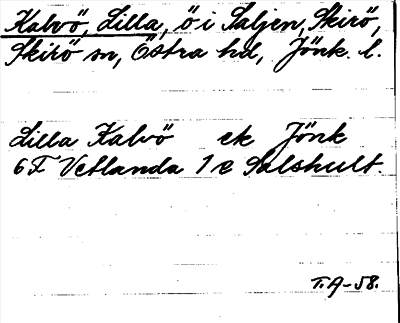 Kalvö, Lilla, ö i Saljen, Skirö,
Skirö sn, Östra hd, Jönk. l.
Lilla Kalvö ek Jönk
6F Vetlanda 1 e Salshult.
T.A-58.